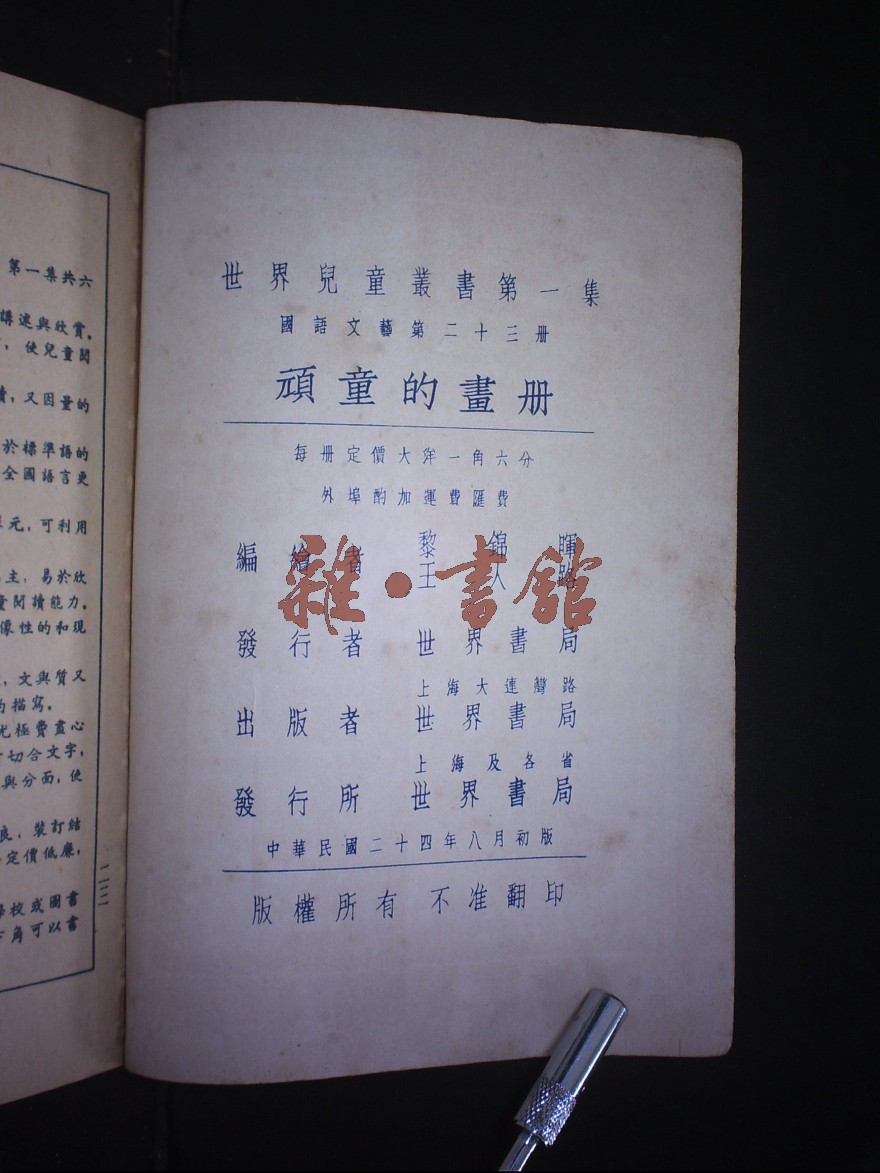 第一集共六
講述與欣賞。
使兒童閱
又因量的
於標準語的
全國語言更
元，可利用
主，易於欣
閱讀能力。
像性的和現
文與質又
的描寫。
尤極費盡心
切合文字，
與分面，使
良，裝訂結
定價低廉，
學校或圖書
角可以書
世界兒童叢書第一集
國語文藝第二十三册
頑童的畫册
每册定價大洋一角六分
外埠酌加運費匯費
編繪者 黎錦暉
王人路
發行者 世界書局
上海大連灣路
出版者 世界書局
上海及各省
發行所 世界書局
中華民國二十四年八月初版
版權所有 不准翻印
雜·書館